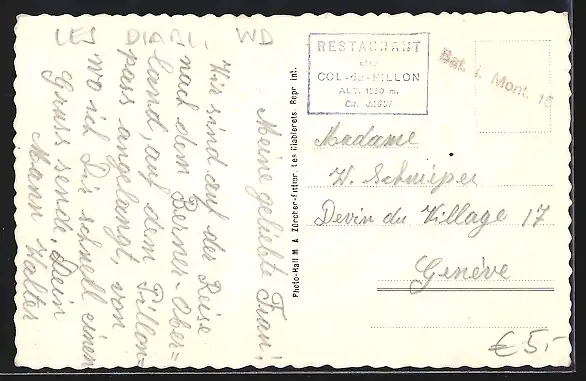 LES DIABL. WD
Meine geliebte Frau!
Wir sind auf der Reise
nach dem Berner-Ober=
land, auf dem Pillon=
pass angelangt, von
wo ich Dir schnell einen
Gruss sende. Dein
Mann Walter
RESTAURANT
COL-du-PILLON
ALT. 1550 m.
Bat. 4. Mont. 15
Photo-Hall M A Zürcher-Enther. Les Diablerets Repr int.
Madame
W. Schnieper
Devin du Village 17
Genève
€5,-